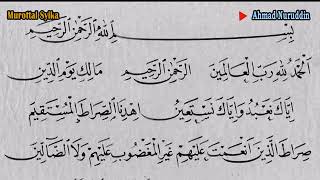 Murottal Syika
Ahmad Nuruddin
بِسْمِ اللهِ الرَّحْمٰنِ الرَّحِيْمِ
اَلْحَمْدُ لِلّٰهِ رَبِّ الْعَالَمِيْنَ الرَّحْمٰنِ الرَّحِيْمِ مَالِكِ يَوْمِ الدِّيْنِ
اِيَّاكَ نَعْبُدُ وَاِيَّاكَ نَسْتَعِيْنُ اِهْدِنَا الصِّرَاطَ الْمُسْتَقِيْمَ
صِرَاطَ الَّذِيْنَ اَنْعَمْتَ عَلَيْهِمْ غَيْرِ الْمَغْضُوْبِ عَلَيْهِمْ وَلَا الضَّالِّيْنَ